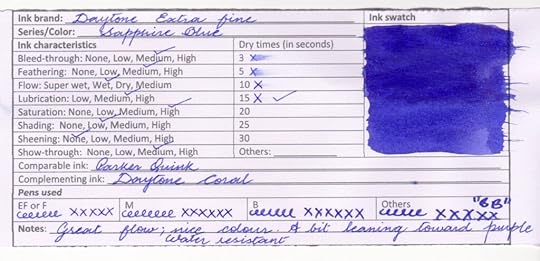 Ink brand: Daytone Extra fine Ink swatch
Series/Color: Sapphire Blue
Ink characteristics Dry times (in seconds)
Bleed-through: None, Low, Medium, High 3 x
Feathering: None, Low, Medium, High 5 x
Flow: Super wet, Wet, Dry, Medium 10 x
Lubrication: Low, Medium, High 15 x ✓
Saturation: None, Low, Medium, High 20
Shading: None, Low, Medium, High 25
Sheening: None, Low, Medium, High 30
Show-through: None, Low, Medium, High Others:
Comparable ink: Parker Quink
Complementing ink: Daytone Coral
Pens used
EF or F M B Others "6B"
xxxxx xxxxxx xxxxxx xxxxx
Notes: Great flow; nice colour. A bit leaning toward purple
Water resistant